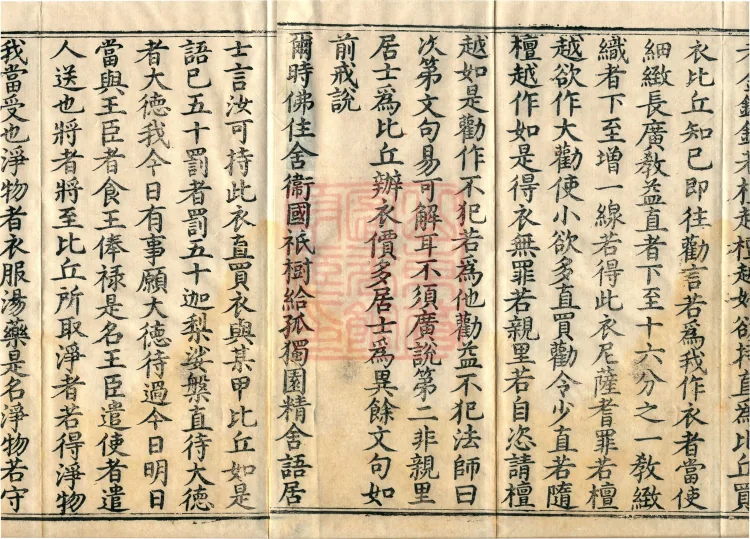 檀越檀越如欲持直為比丘買
衣比丘知已即往勸言若為我作衣者當使
細緻長廣教益直者下至十六分之一教緻
織者下至增一線若得此衣尼薩耆罪若檀
越欲作大勸使小欲多直買勸令少直若隨
檀越作如是得衣無罪若親里若自恣請檀
越如是勸作不犯若為他勸益不犯法師曰
次第文句易可解耳不須廣說第二非親里
居士為比丘辦衣價多居士為異餘文句如
前戒說
爾時佛住舍衛國祇樹給孤獨園精舍語居
士言汝可持此衣直買衣與某甲比丘如是
語已五十罰者罰五十迦梨娑槃直待大德
者大德我今日有事願大德待過今日明日
當與王臣者食王俸祿是名王臣遣使者遣
人送也將者將至比丘所取淨者若得淨物
我當受也淨物者衣服湯藥是名淨物若守